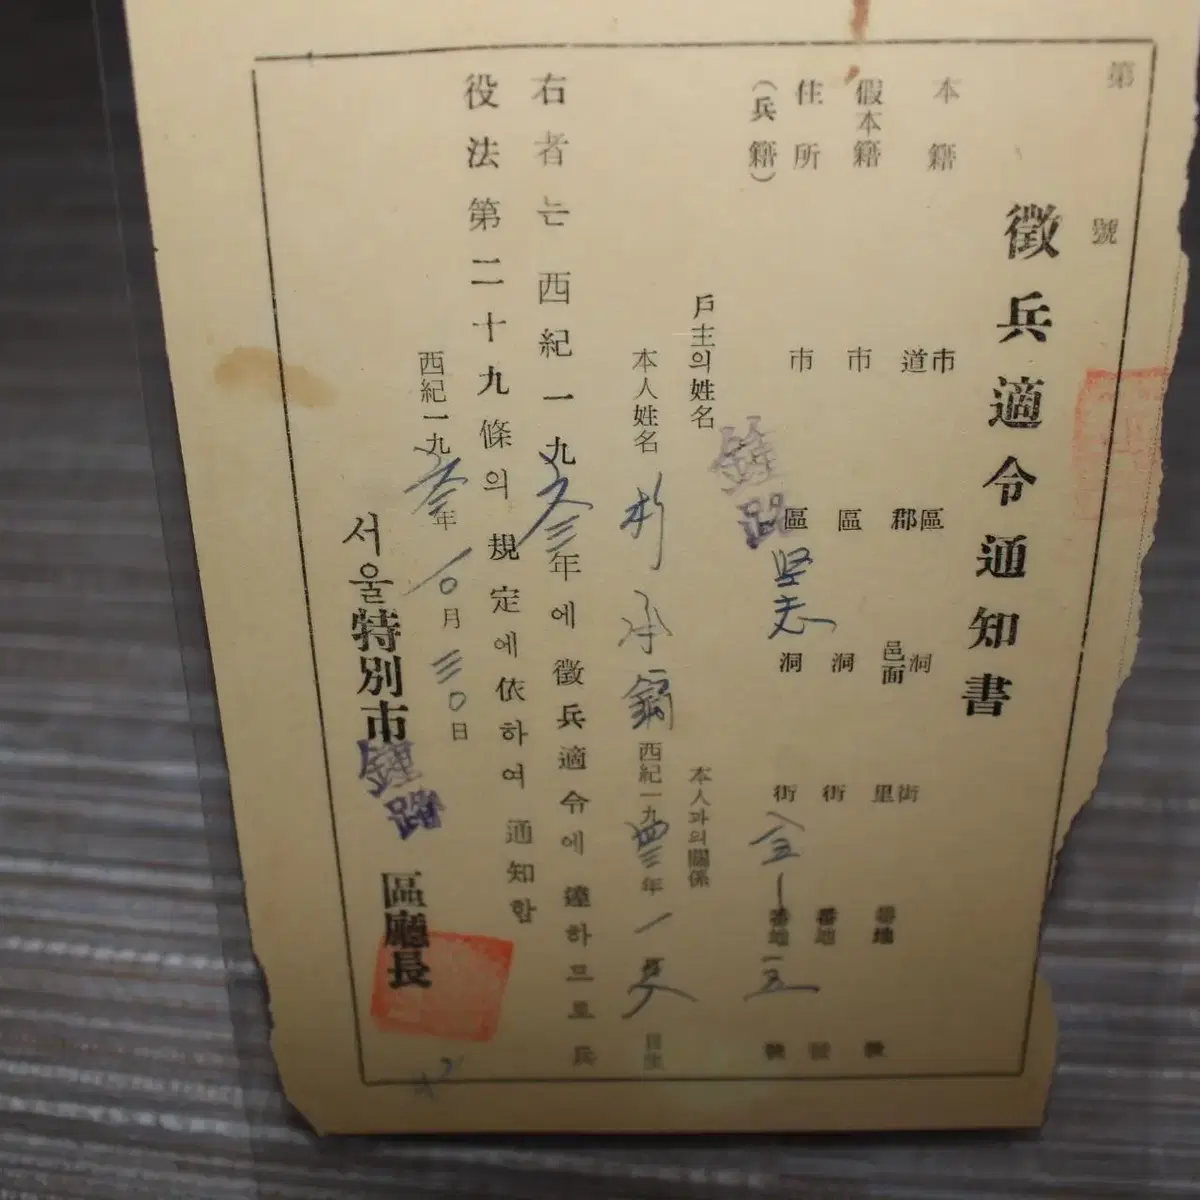 第 號
徵兵適令通知書
本籍 市道 區郡 洞邑面 街里 番地 號
假本籍 市 區 洞 街 番地 號
住所 市 鍾路區 堅志洞 街 番地 號
(兵籍)
戶主의 姓名 本人과의 關係
本人姓名 朴承鎬 西紀一九四三年 一月 日生
右者는 西紀一九六三年에 徵兵適令에 達하므로 兵
役法第二十九條의 規定에 依하여 通知함
西紀一九六三年 一〇月 三〇日
서울特別市 鍾路 區廳長